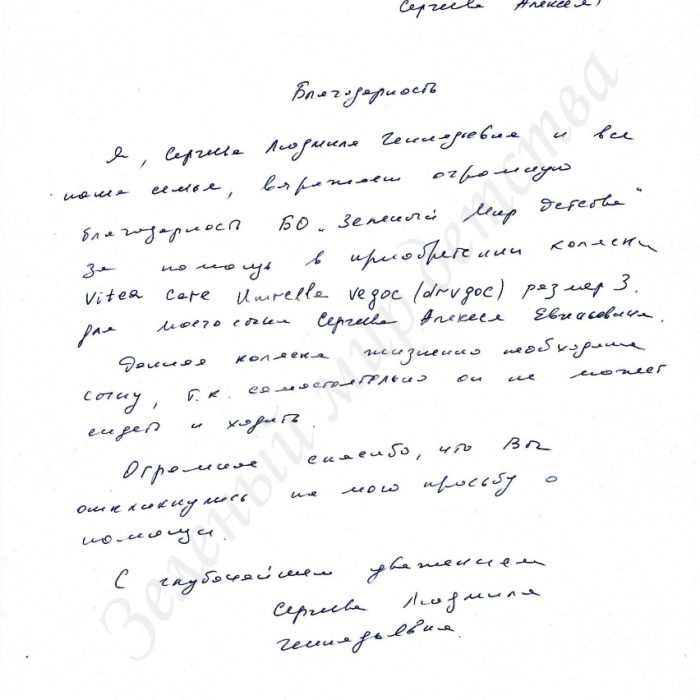 Сергеева Алексея
Благодарность
Я, Сергеева Людмила Геннадьевна и вся
наша семья, выражает огромную
благодарность БО „Зеленый Мир детства"
за помощь в приобретении коляски
Vitea Care Umrella vegoc (drvgoc) размер 3.
для моего сына Сергеева Алексея Евгеньевича.
Данная коляска жизненно необходима
сыну, т.к. самостоятельно он не может
сидеть и ходить.
Огромное спасибо, что Вы
откликнулись на мою просьбу о
помощи.
С глубочайшем уважением
Сергеева Людмила
Геннадьевна.
Зеленый мир детства